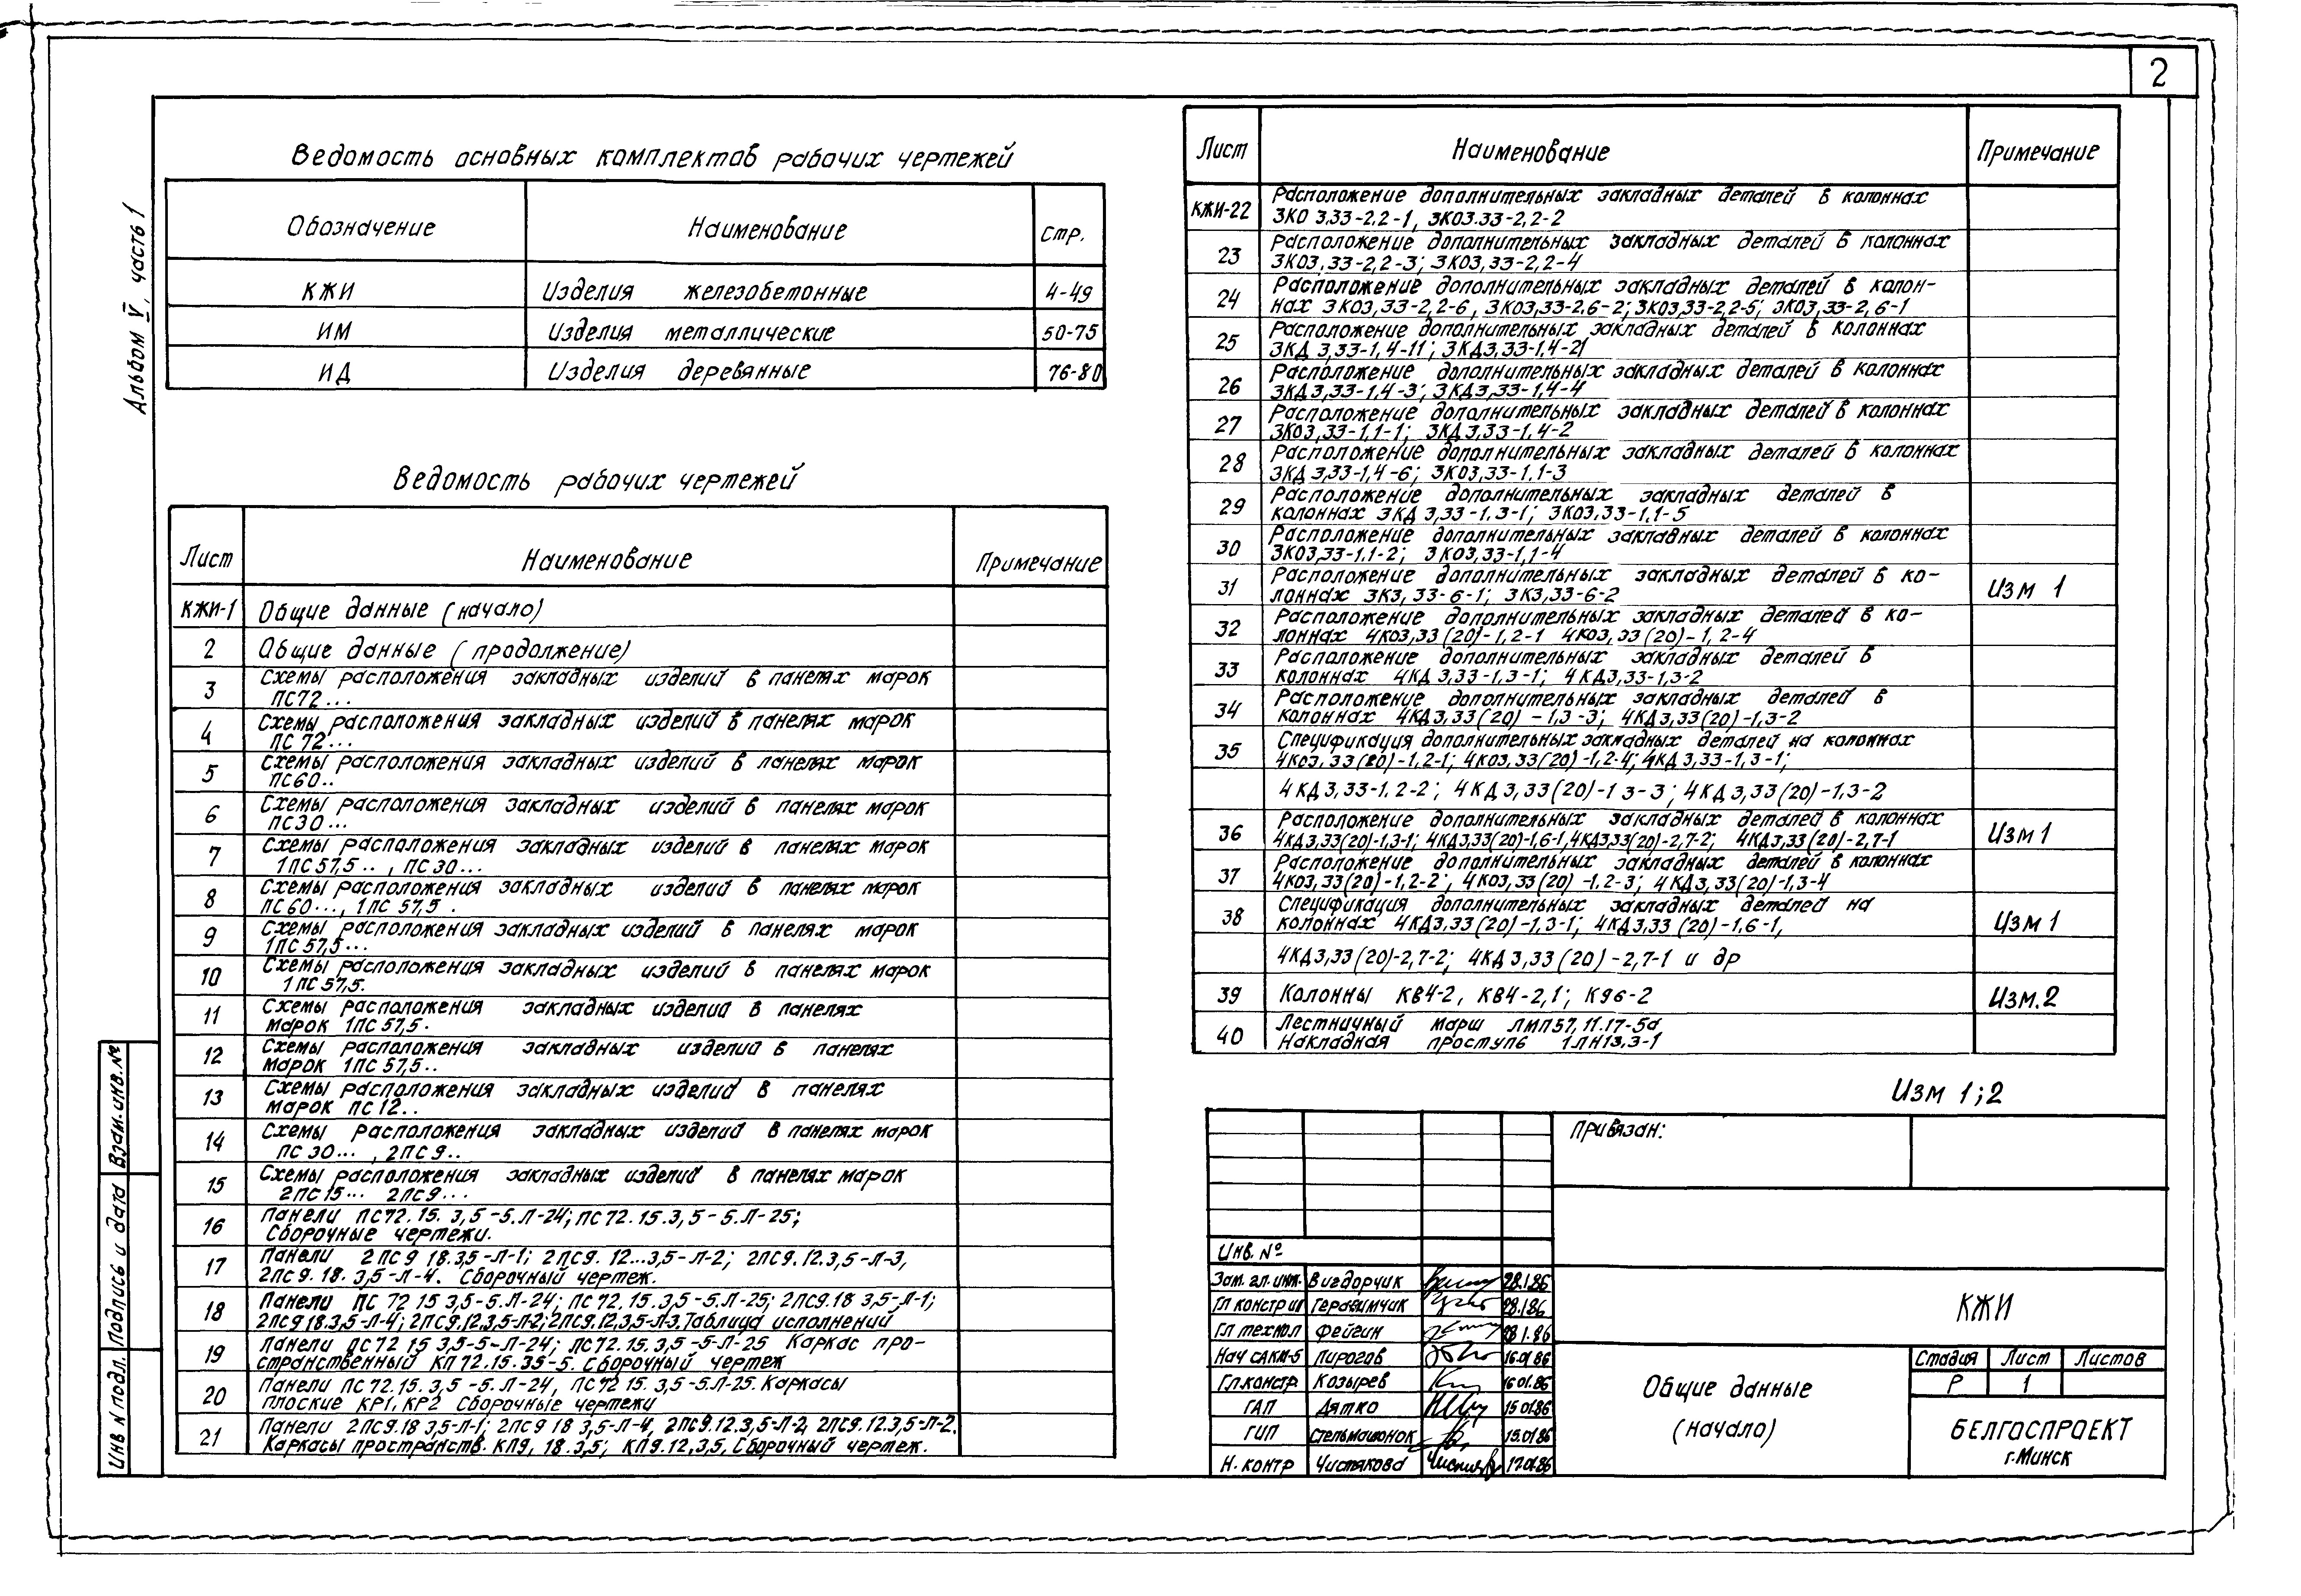 2
Альбом V, часть 1
Ведомость основных комплектов рабочих чертежей
Обозначение Наименование Стр.
КЖИ Изделия железобетонные 4-49
ИМ Изделия металлические 50-75
ИД Изделия деревянные 76-80
Ведомость рабочих чертежей
Лист Наименование Примечание
КЖИ-1 Общие данные (начало)
2 Общие данные (продолжение)
3 Схемы расположения закладных изделий в панелях марок
ПС72...
4 Схемы расположения закладных изделий в панелях марок
ПС 72...
5 Схемы расположения закладных изделий в панелях марок
ПС60..
6 Схемы расположения закладных изделий в панелях марок
ПС30...
7 Схемы расположения закладных изделий в панелях марок
1ПС57,5.. , ПС30...
8 Схемы расположения закладных изделий в панелях марок
ПС60..., 1ПС 57,5 .
9 Схемы расположения закладных изделий в панелях марок
1ПС57,5...
10 Схемы расположения закладных изделий в панелях марок
1ПС57,5.
11 Схемы расположения закладных изделий в панелях
марок 1ПС57,5.
12 Схемы расположения закладных изделий в панелях
марок 1ПС57,5..
13 Схемы расположения закладных изделий в панелях
марок ПС12..
14 Схемы расположения закладных изделий в панелях марок
ПС 30... , 2ПС9..
15 Схемы расположения закладных изделий в панелях марок
2ПС15... 2ПС9...
16 Панели ПС72.15.3,5-5.Л-24; ПС72.15.3,5-5.Л-25;
Сборочные чертежи.
17 Панели 2ПС9 18.3,5-Л-1; 2ПС9. 12...3,5-Л-2; 2ПС9.12.3,5-Л-3,
2ПС9.18.3,5-Л-4. Сборочный чертеж.
18 Панели ПС 72 15 3,5-5.Л-24; ПС72.15.3,5-5.Л-25; 2ПС9.18 3,5-Л-1;
2ПС9 18.3,5-Л-4; 2ПС9.12.3,5-Л-2; 2ПС9.12.3,5-Л-3. Таблица исполнений
19 Панели ПС72 15 3,5-5-Л-24; ПС72.15.3,5-5-Л-25 Каркас про-
странственный КП72.15.35-5. Сборочный чертеж
20 Панели ПС72.15.3,5-5.Л-24, ПС72 15.3,5-5.Л-25. Каркасы
плоские КР1, КР2 Сборочные чертежи
21 Панели 2ПС9.18 3,5-Л-1; 2ПС9 18 3,5-Л-4, 2ПС9.12.3,5-Л-2, 2ПС9.12.3,5-Л-2.
Каркасы пространств. КП9, 18.3,5; КП9.12,3,5, Сборочный чертеж.
Лист Наименование Примечание
КЖИ-22 Расположение дополнительных закладных деталей в колоннах
3КО 3,33-2,2-1, 3КО3,33-2,2-2
23 Расположение дополнительных закладных деталей в колоннах
3КО3,33-2,2-3; 3КО3,33-2,2-4
24 Расположение дополнительных закладных деталей в колон-
нах 3КО3,33-2,2-6, 3КО3,33-2,6-2; 3КО3,33-2,2-5; 3КО3,33-2,6-1
25 Расположение дополнительных закладных деталей в колоннах
3КД 3,33-1,4-11; 3КД3,33-1,4-21
26 Расположение дополнительных закладных деталей в колоннах
3КД3,33-1,4-3; 3КД3,33-1,4-4
27 Расположение дополнительных закладных деталей в колоннах
3КО3,33-1,1-1; 3КД3,33-1,4-2
28 Расположение дополнительных закладных деталей в колоннах
3КД 3,33-1,4-6; 3КО3,33-1,1-3
29 Расположение дополнительных закладных деталей в
колоннах 3КД 3,33-1,3-1; 3КО3,33-1,1-5
30 Расположение дополнительных закладных деталей в колоннах
3КО3,33-1,1-2; 3КО3,33-1,1-4
31 Расположение дополнительных закладных деталей в ко- Изм 1
лоннах 3К3,33-6-1; 3К3,33-6-2
32 Расположение дополнительных закладных деталей в ко-
лоннах 4КО3,33(20)-1,2-1 4КО3,33(20)-1,2-4
33 Расположение дополнительных закладных деталей в
колоннах 4КД 3,33-1,3-1; 4КД3,33-1,3-2
34 Расположение дополнительных закладных деталей в
колоннах 4КД3,33(20)-1,3-3; 4КД3,33(20)-1,3-2
35 Спецификация дополнительных закладных деталей на колоннах
4КО3,33(20)-1,2-1; 4КО3,33(20)-1,2-4; 4КД3,33-1,3-1;
4КД3,33-1,2-2; 4КД3,33(20)-1 3-3; 4КД3,33(20)-1,3-2
36 Расположение дополнительных закладных деталей в колоннах Изм 1
4КД3,33(20)-1,3-1; 4КД3,33(20)-1,6-1, 4КД3,33(20)-2,7-2; 4КД3,33(20)-2,7-1
37 Расположение дополнительных закладных деталей в колоннах
4КО3,33(20)-1,2-2; 4КО3,33(20)-1,2-3; 4КД3,33(20)-1,3-4
38 Спецификация дополнительных закладных деталей на Изм 1
колоннах 4КД3,33(20)-1,3-1; 4КД3,33(20)-1,6-1,
4КД3,33(20)-2,7-2; 4КД3,33(20)-2,7-1 и др
39 Колонны КВ4-2, КВ4-2,1; К96-2 Изм.2
40 Лестничный марш ЛМП57,11.17-5а
Накладная проступь 1ЛН13,3-1
Изм 1;2
Привязан:
Инв. №
Зам. гл. инж. Вигдорчик 28.1.86
Гл констр ин Геравимчик 28.1.86
Гл технол Фейгин 28 1.86
Нач САКМ-5 Пирогов 16.01 86
Гл.констр. Козырев 16 01.86
ГАП Дятко 15 01.86
ГИП Стельмашонок 15.01 86
Н. контр Чистякова 17.01.86
КЖИ
Общие данные
(начало)
Стадия Лист Листов
Р 1
БЕЛГОСПРОЕКТ
г.Минск
Взам. инв. №
Подпись и дата
Инв N подл.